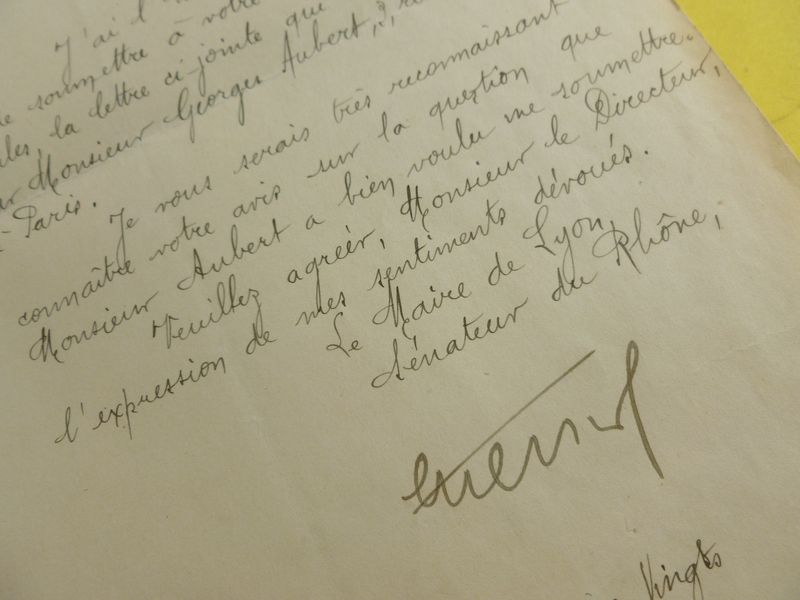 J'ai l'
soumettre à votre
la lettre ci-jointe que
Monsieur Georges Aubert, 3, r
Paris.
Je vous serais très reconnaissant
connaître votre avis sur la question que
Monsieur Aubert a bien voulu me soumettre.
Veuillez agréer, Monsieur le Directeur,
l'expression de mes sentiments dévoués.
Le Maire de Lyon,
Sénateur du Rhône,
Vingts